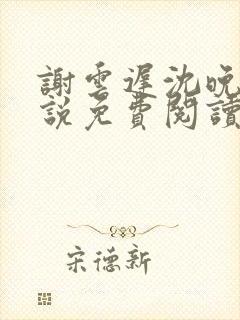 謝雲遲沈晚
說免費閱讀
宋德新